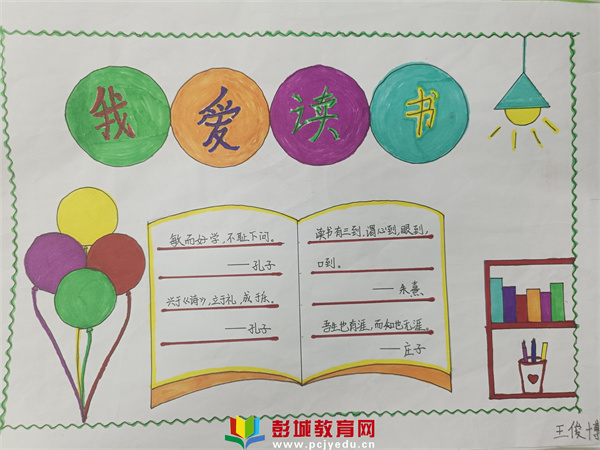 我爱读书
敏而好学，不耻下问。
——孔子
兴于《诗》，立于礼，成于乐。
——孔子
读书有三到，谓心到，眼到，
口到。
——朱熹
吾生也有涯，而知也无涯。
——庄子
王俊博
彭城教育网
www.pcjyedu.cn